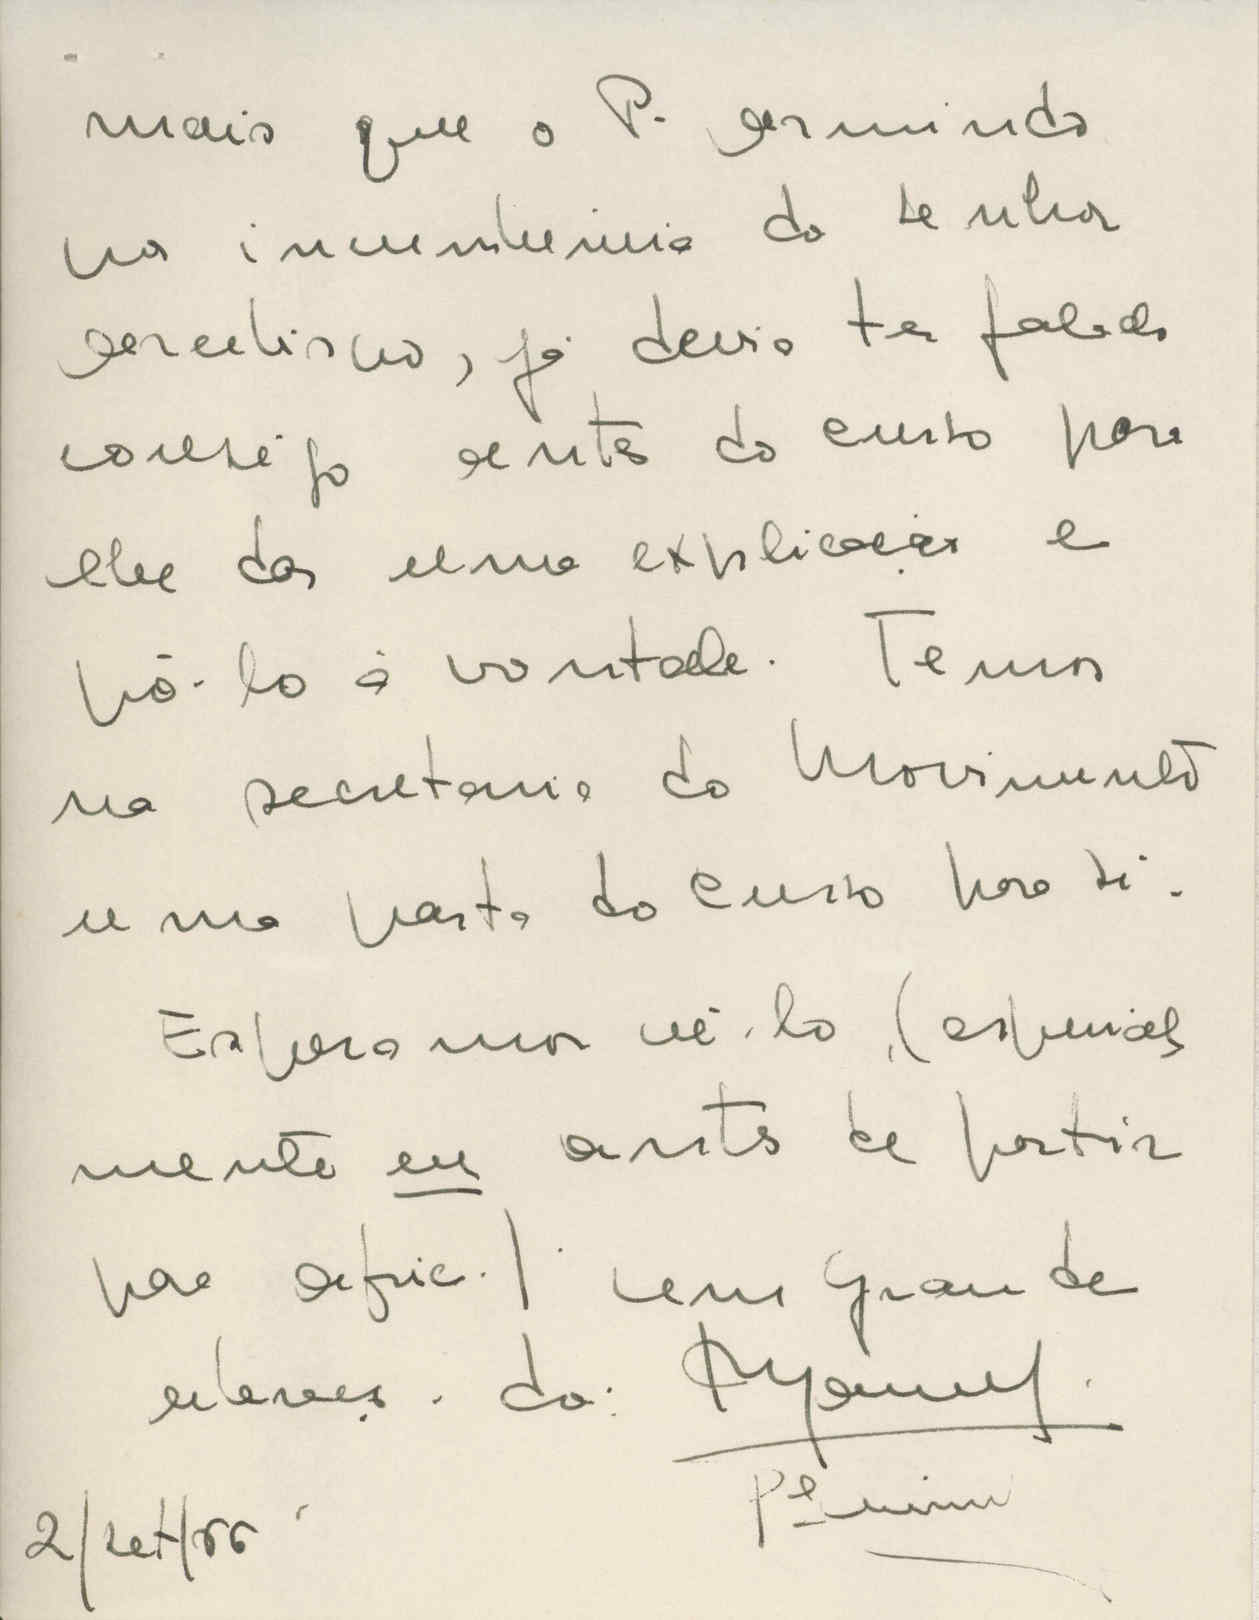 mais que o P. Armindo
por incumbencia do Senhor
Arcebispo, já devia ter falado
consigo antes do curso para
lhe dar uma explicação e
pô-lo à vontade. Temos
na secretaria do Movimento
uma pasta do curso para si.
Esperamos vê-lo, (especial
mente eu antes de partir
para Africa) com grande
abraço. do:
2/set/66